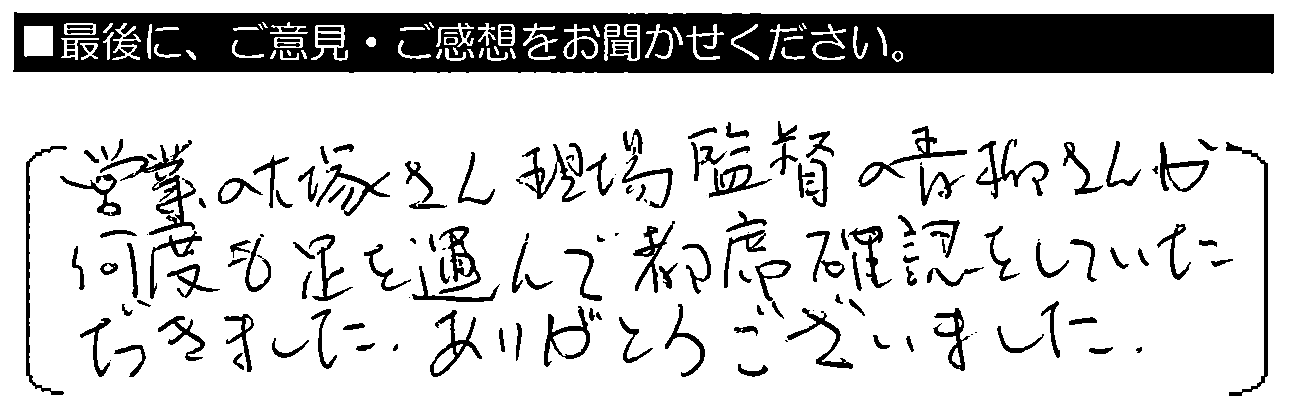 ■最後に、ご意見・ご感想をお聞かせください。
営業の大塚さん現場監督の青柳さんが
何度も足を運んで都席確認をしていた
だきました。ありがとうございました。